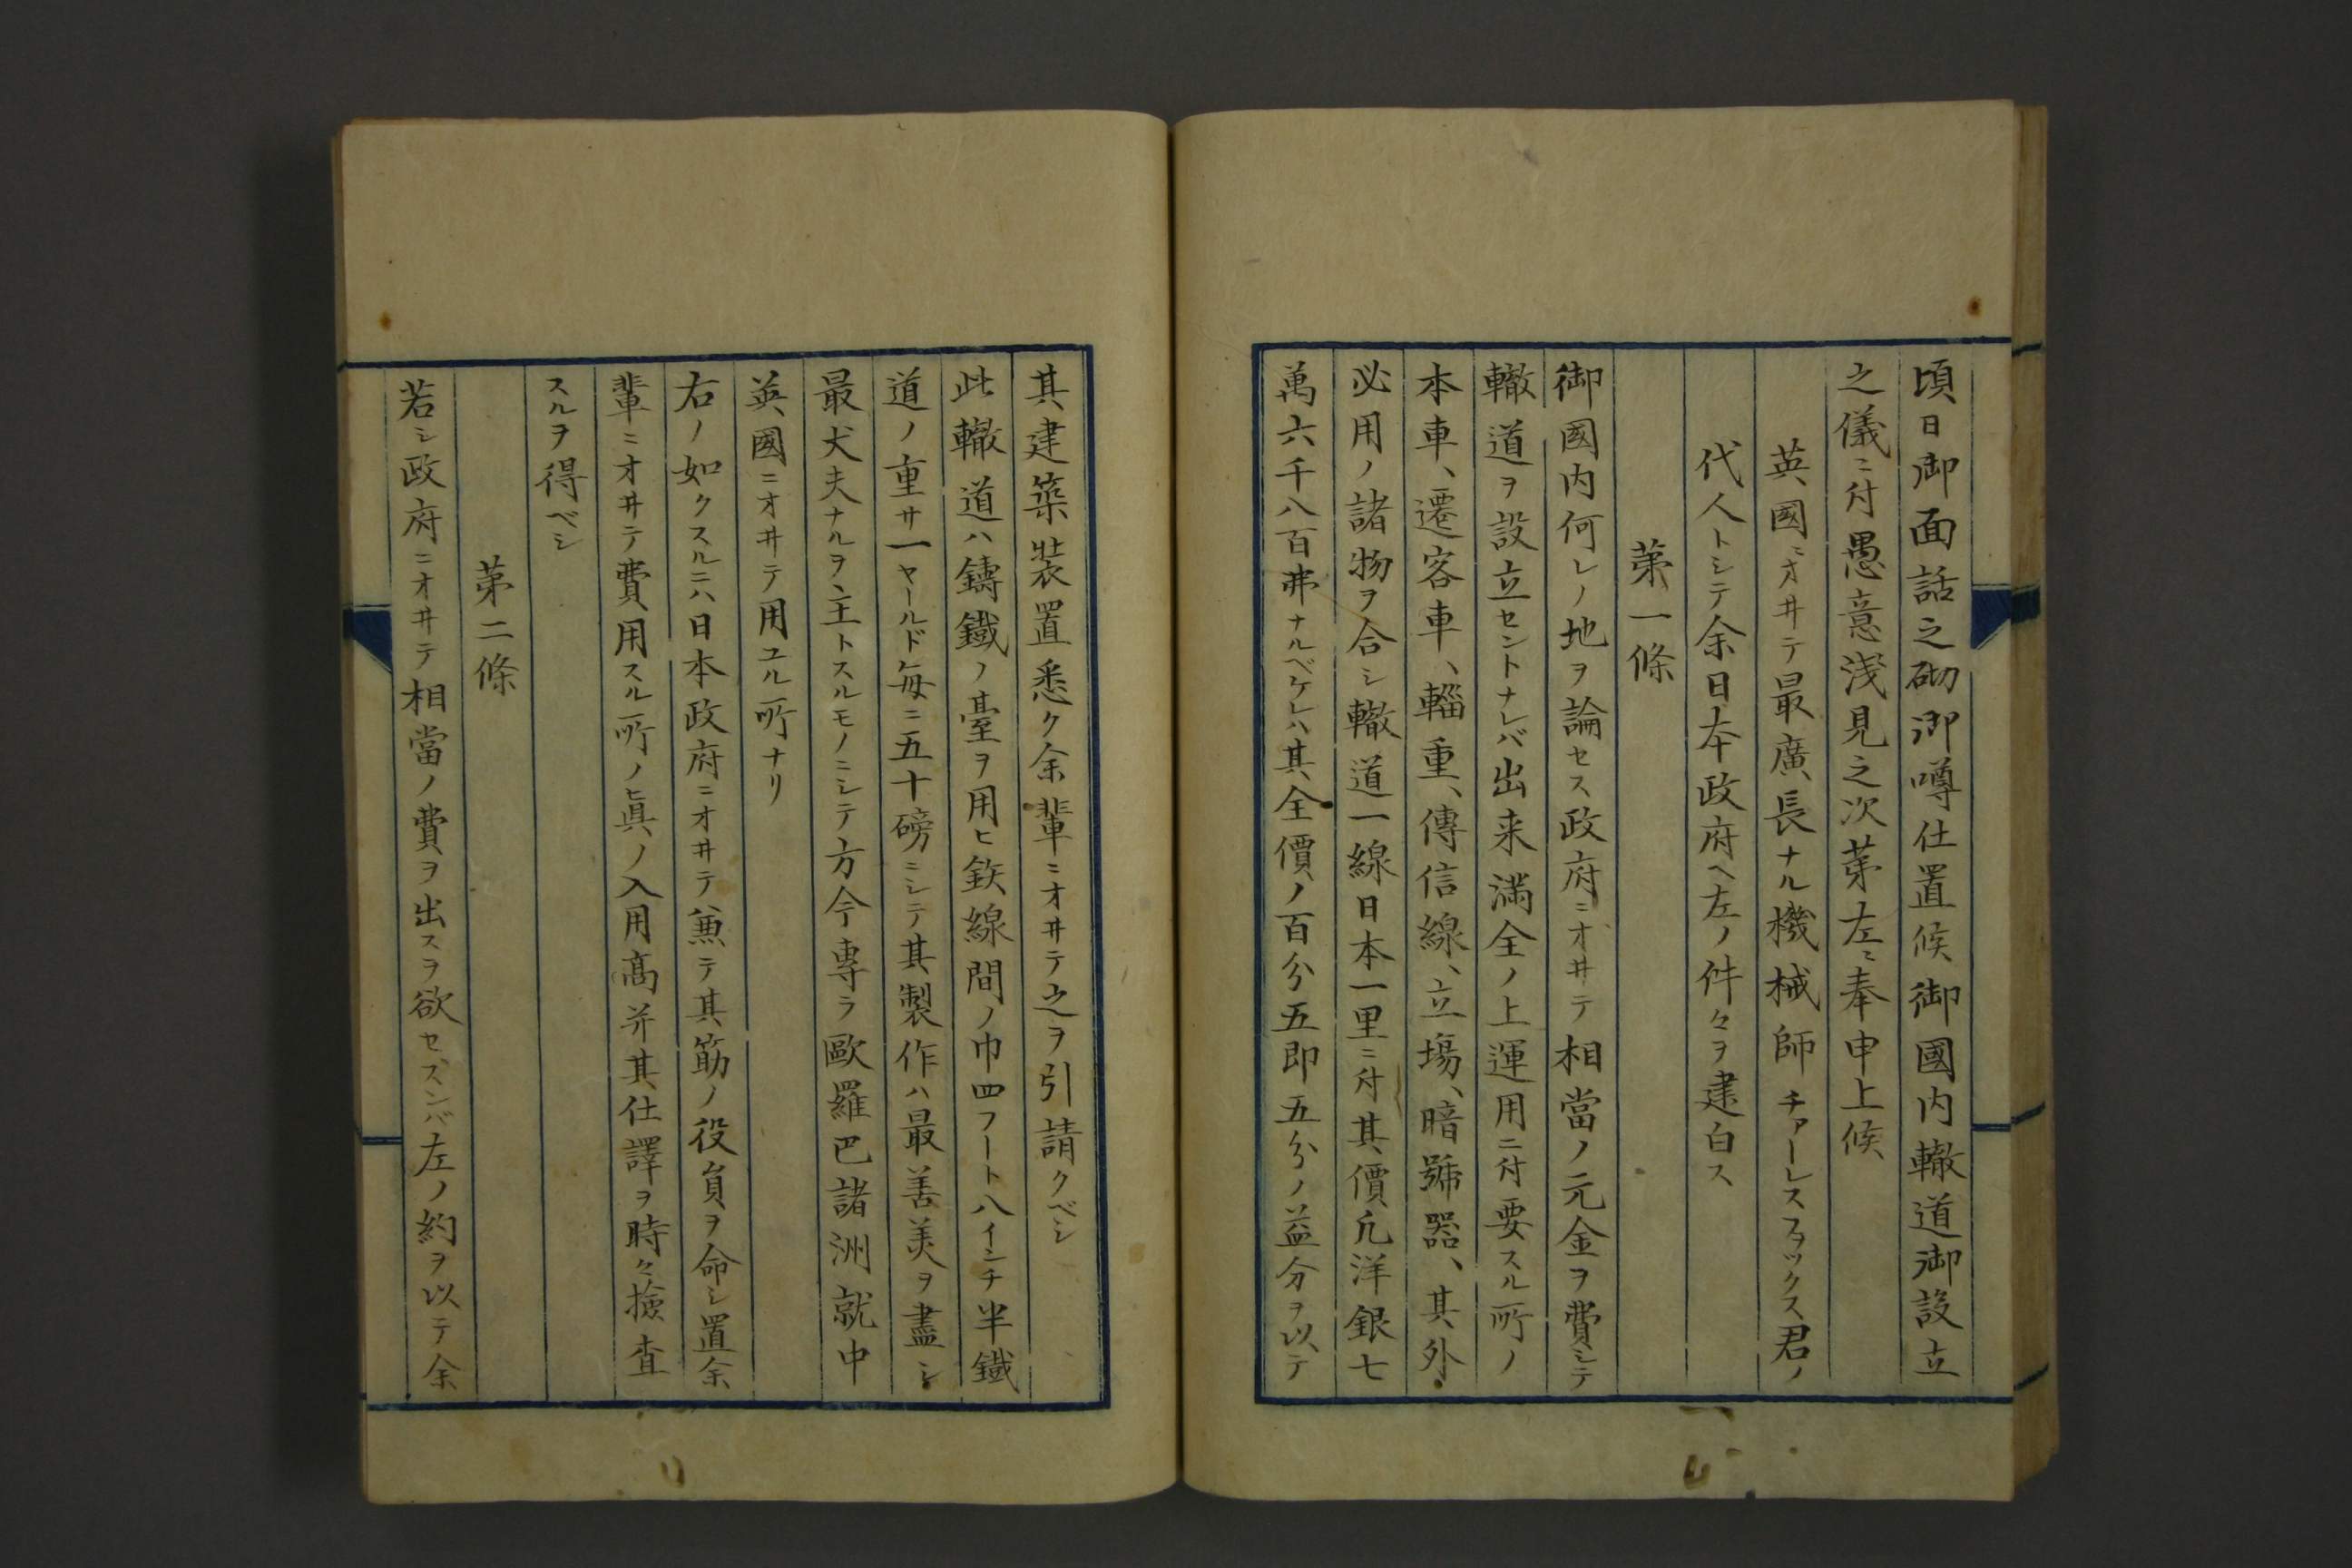 頃日御面話之砌御噂仕置候御國内轍道御設立
之儀ニ付愚意浅見之次苐左ニ奉申上候
英國ニオヰテ最廣長ナル機械師チァーレスフヲックス君ノ
代人トシテ余日本政府ヘ左ノ件々ヲ建白ス
苐一條
御國内何レノ地ヲ論セス政府ニオヰテ相當ノ元金ヲ費シテ
轍道ヲ設立セントナレバ出来満全ノ上運用ニ付要スル所ノ
本車、遷客車、輜重、傳信線、立塲、暗號器、其外
必用ノ諸物ヲ合シ轍道一線日本一里ニ付其價凢洋銀七
萬六千八百弗ナルベケレハ其全價ノ百分五即五分ノ益分ヲ以テ
其建築装置悉ク余輩ニオヰテ之ヲ引請クベシ
此轍道ハ鑄鐵ノ臺ヲ用ヒ鉄線間ノ巾四フート八インチ半鐵
道ノ重サ一ヤールド毎ニ五十磅ニシテ其製作ハ最善美ヲ盡シ
最犬夫ナルヲ主トスルモノニシテ方今專ラ歐羅巴諸洲就中
英國ニオヰテ用ユル所ナリ
右ノ如クスルニハ日本政府ニオヰテ兼テ其筋ノ役員ヲ命シ置余
輩ニオヰテ費用スル所ノ眞ノ入用髙并其仕譯ヲ時々撿査
スルヲ得ベシ
苐二條
若シ政府ニオヰテ相當ノ費ヲ出スヲ欲セズンバ左ノ約ヲ以テ余